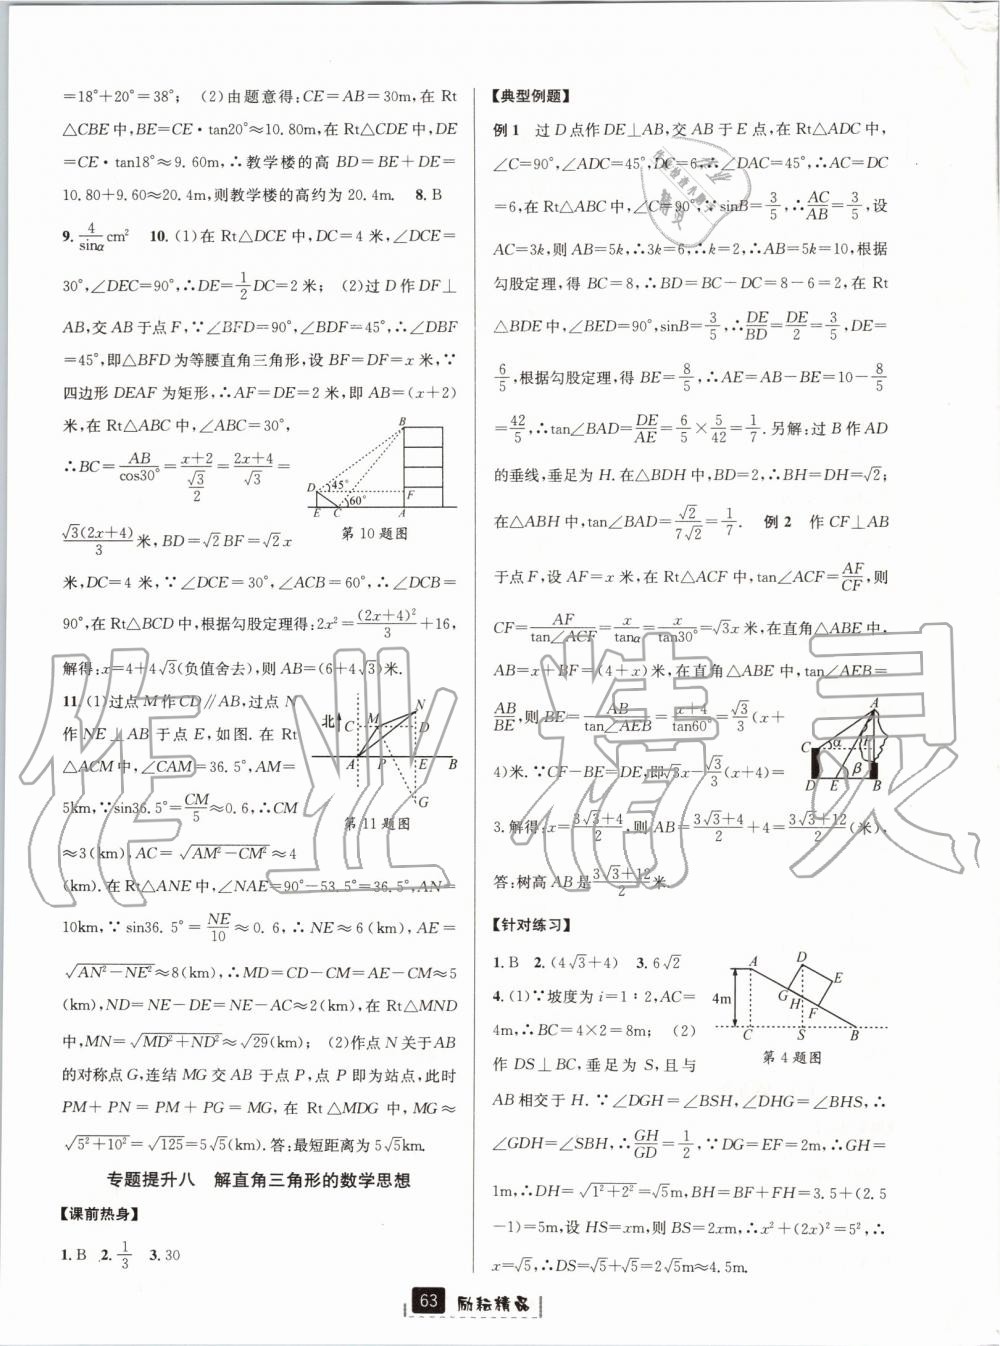 =18°+20°=38°; (2)由题意得:CE=AB=30m,在 Rt
△CBE中,BE=CE·tan20°≈10.80m,在Rt△CDE中,DE
=CE·tan18°≈9.60m,∴教学楼的高 BD=BE+DE=
10.80+9.60≈20.4m,则教学楼的高约为 20.4m. 8. B
9. 4/sinα cm² 10. (1)在 Rt△DCE 中,DC=4 米,∠DCE=
30°,∠DEC=90°,∴DE=1/2DC=2米; (2)过 D 作 DF⊥
AB,交 AB 于点 F,∵∠BFD=90°,∠BDF=45°,∴∠DBF
=45°,即△BFD为等腰直角三角形,设 BF=DF=x 米,∵
四边形 DEAF 为矩形,∴AF=DE=2 米,即 AB=(x+2)
米,在 Rt△ABC 中,∠ABC=30°,
∴BC=AB/cos30°=(x+2)/(√3/2)=(2x+4)/√3=
√3(2x+4)/3米,BD=√2BF=√2x
B
D 45° F
E C 60° A
第10题图
米,DC=4 米,∵∠DCE=30°,∠ACB=60°,∴∠DCB=
90°,在 Rt△BCD 中,根据勾股定理得:2x²=(2x+4)²/3+16,
解得:x=4+4√3(负值舍去),则 AB=(6+4√3)米.
11. (1)过点 M 作CD∥AB,过点 N
作 NE⊥AB 于点 E,如图. 在 Rt
△ACM 中,∠CAM=36.5°,AM=
5km,∵sin36.5°=CM/5≈0.6,∴CM
≈3(km),AC=√(AM²−CM²)≈4
北 N
C M D
A P E B
G
第11题图
(km).在 Rt△ANE 中,∠NAE=90°−53.5°=36.5°,AN=
10km,∵sin36.5°=NE/10≈0.6,∴NE≈6(km),AE=
√(AN²−NE²)≈8(km),∴MD=CD−CM=AE−CM≈5
(km),ND=NE−DE=NE−AC≈2(km),在 Rt△MND
中,MN=√(MD²+ND²)≈√29(km); (2)作点 N 关于AB
的对称点G,连结 MG 交 AB 于点 P,点 P 即为站点,此时
PM+PN=PM+PG=MG,在 Rt△MDG 中,MG≈
√(5²+10²)=√125=5√5(km).答:最短距离为 5√5km.
专题提升八 解直角三角形的数学思想
【课前热身】
1. B 2. 1/3 3. 30
【典型例题】
例 1 过 D 点作 DE⊥AB,交 AB 于 E 点,在 Rt△ADC 中,
∠C=90°,∠ADC=45°,DC=6,∴∠DAC=45°,∴AC=DC
=6,在 Rt△ABC 中,∠C=90°,∵sinB=3/5,∴AC/AB=3/5,设
AC=3k,则 AB=5k,∴3k=6,∴k=2,∴AB=5k=10,根据
勾股定理,得 BC=8,∴BD=BC−DC=8−6=2,在 Rt
△BDE 中,∠BED=90°,sinB=3/5,∴DE/BD=DE/2=3/5,DE=
6/5,根据勾股定理,得 BE=8/5,∴AE=AB−BE=10−8/5
=42/5,∴tan∠BAD=DE/AE=6/5×5/42=1/7.另解:过 B 作 AD
的垂线,垂足为 H.在△BDH 中,BD=2,∴BH=DH=√2;
在△ABH 中,tan∠BAD=√2/7√2=1/7. 例 2 作 CF⊥AB
于点 F,设 AF=x 米,在 Rt△ACF 中,tan∠ACF=AF/CF,则
CF=AF/tan∠ACF=x/tanα=x/tan30°=√3x米,在直角△ABE 中,
AB=x+BF=(4+x)米,在直角△ABE 中,tan∠AEB=
AB/BE,则 BE=AB/tan∠AEB=(x+4)/tan60°=√3/3(x+
4)米.∵CF−BE=DE,即√3x−√3/3(x+4)=
A
C α F
β
D E B
3.解得:x=(3√3+4)/2,则 AB=(3√3+4)/2+4=(3√3+12)/2(米).
答:树高 AB 是(3√3+12)/2米.
【针对练习】
1. B 2. (4√3+4) 3. 6√2
4. (1)∵坡度为 i=1∶2,AC=
4m,∴BC=4×2=8m; (2)
作 DS⊥BC,垂足为 S,且与
A D
4m G H E
F
C S B
第4题图
AB 相交于 H.∵∠DGH=∠BSH,∠DHG=∠BHS,∴
∠GDH=∠SBH,∴GH/GD=1/2,∵DG=EF=2m,∴GH=
1m,∴DH=√(1²+2²)=√5m,BH=BF+FH=3.5+(2.5
−1)=5m,设 HS=xm,则 BS=2xm,∴x²+(2x)²=5²,∴
x=√5,∴DS=√5+√5=2√5m≈4.5m.
63 励耘精品
作业精灵